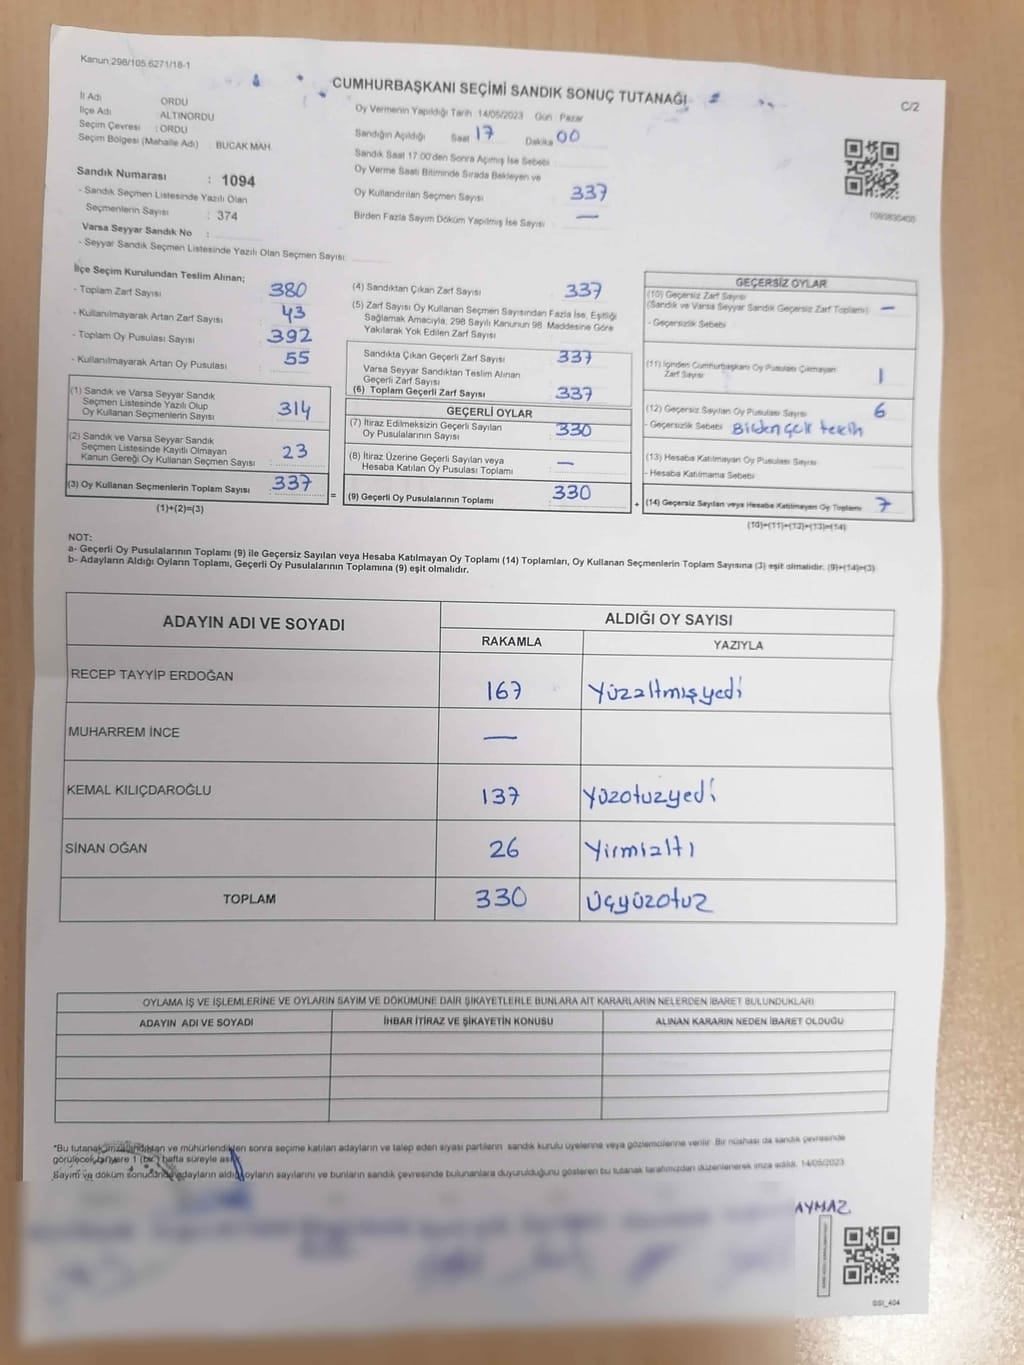 Kanun.298/105.6271/18-1
CUMHURBAŞKANI SEÇİMİ SANDIK SONUÇ TUTANAĞI
C/2
İl Adı ORDU
İlçe Adı ALTINORDU
Seçim Çevresi : ORDU
Seçim Bölgesi (Mahalle Adı) : BUCAK MAH
Sandık Numarası : 1094
- Sandık Seçmen Listesinde Yazılı Olan
Seçmenlerin Sayısı : 374
Varsa Seyyar Sandık No :
- Seyyar Sandık Seçmen Listesinde Yazılı Olan Seçmen Sayısı:
Oy Vermenin Yapıldığı Tarih :14/05/2023 Gün : Pazar
Sandığın Açıldığı Saat 17 Dakika 00
Sandık Saat 17:00'den Sonra Açımış İse Sebebi
Oy Verme Saati Bitiminde Sırada Bekleyen ve
Oy Kullandırılan Seçmen Sayısı 337
Birden Fazla Sayım Döküm Yapılmış İse Sayısı : —
İlçe Seçim Kurulundan Teslim Alınan;
- Toplam Zarf Sayısı : 380
- Kullanılmayarak Artan Zarf Sayısı : 43
- Toplam Oy Pusulası Sayısı : 392
- Kullanılmayarak Artan Oy Pusulası : 55
(1) Sandık ve Varsa Seyyar Sandık
Seçmen Listesinde Yazılı Olup
Oy Kullanan Seçmenlerin Sayısı : 314
(2) Sandık ve Varsa Seyyar Sandık
Seçmen Listesinde Kayıtlı Olmayan
Kanun Gereği Oy Kullanan Seçmen Sayısı : 23
(3) Oy Kullanan Seçmenlerin Toplam Sayısı : 337
(1)+(2)=(3)
=
(4) Sandıktan Çıkan Zarf Sayısı : 337
(5) Zarf Sayısı Oy Kullanan Seçmen Sayısından Fazla İse, Eşitliği
Sağlamak Amacıyla, 298 Sayılı Kanunun 98. Maddesine Göre
Yakılarak Yok Edilen Zarf Sayısı
Sandıkta Çıkan Geçerli Zarf Sayısı : 337
Varsa Seyyar Sandıktan Teslim Alınan
Geçerli Zarf Sayısı
(6) Toplam Geçerli Zarf Sayısı : 337
GEÇERLİ OYLAR
(7) İtiraz Edilmeksizin Geçerli Sayılan
Oy Pusulalarının Sayısı : 330
(8) İtiraz Üzerine Geçerli Sayılan veya
Hesaba Katılan Oy Pusulası Toplamı : —
(9) Geçerli Oy Pusulalarının Toplamı : 330
+
GEÇERSİZ OYLAR
(10) Geçersiz Zarf Sayısı
(Sandık ve Varsa Seyyar Sandık Geçersiz Zarf Toplamı) : —
- Geçersizlik Sebebi
(11) İçinden Cumhurbaşkanı Oy Pusulası Çıkmayan
Zarf Sayısı 1
(12) Geçersiz Sayılan Oy Pusulası Sayısı 6
- Geçersizlik Sebebi Birden çok tercih
(13) Hesaba Katılmayan Oy Pusulası Sayısı
- Hesaba Katılmama Sebebi
(14) Geçersiz Sayılan veya Hesaba Katılmayan Oy Toplamı 7
(10)+(11)+(12)+(13)=(14)
NOT:
a- Geçerli Oy Pusulalarının Toplamı (9) ile Geçersiz Sayılan veya Hesaba Katılmayan Oy Toplamı (14) Toplamları, Oy Kullanan Seçmenlerin Toplam Sayısına (3) eşit olmalıdır. (9)+(14)=(3)
b- Adayların Aldığı Oyların Toplamı, Geçerli Oy Pusulalarının Toplamına (9) eşit olmalıdır.
ADAYIN ADI VE SOYADI ALDIĞI OY SAYISI
RAKAMLA YAZIYLA
RECEP TAYYİP ERDOĞAN 167 Yüzaltmışyedi
MUHARREM İNCE —
KEMAL KILIÇDAROĞLU 137 Yüzotuzyedi
SİNAN OĞAN 26 Yirmialtı
TOPLAM 330 Üçyüzotuz
OYLAMA İŞ VE İŞLEMLERİNE VE OYLARIN SAYIM VE DÖKÜMÜNE DAİR ŞİKAYETLERLE BUNLARA AİT KARARLARIN NELERDEN İBARET BULUNDUKLARI
ADAYIN ADI VE SOYADI İHBAR İTİRAZ VE ŞİKAYETİN KONUSU ALINAN KARARIN NEDEN İBARET OLDUĞU
*Bu tutanak imzalandıktan ve mühürlendikten sonra seçime katılan adayların ve talep eden siyasi partilerin sandık kurulu üyelerine veya gözlemcilerine verilir. Bir nüshası da sandık çevresinde
görülecek bir yere 1 (bir) hafta süreyle asılır.
Sayım ve döküm sonucunda adayların aldığı oyların sayılarını ve bunların sandık çevresinde bulunanlara duyurulduğunu gösteren bu tutanak tarafımızdan düzenlenerek imza edildi. 14/05/2023
AYMAZ